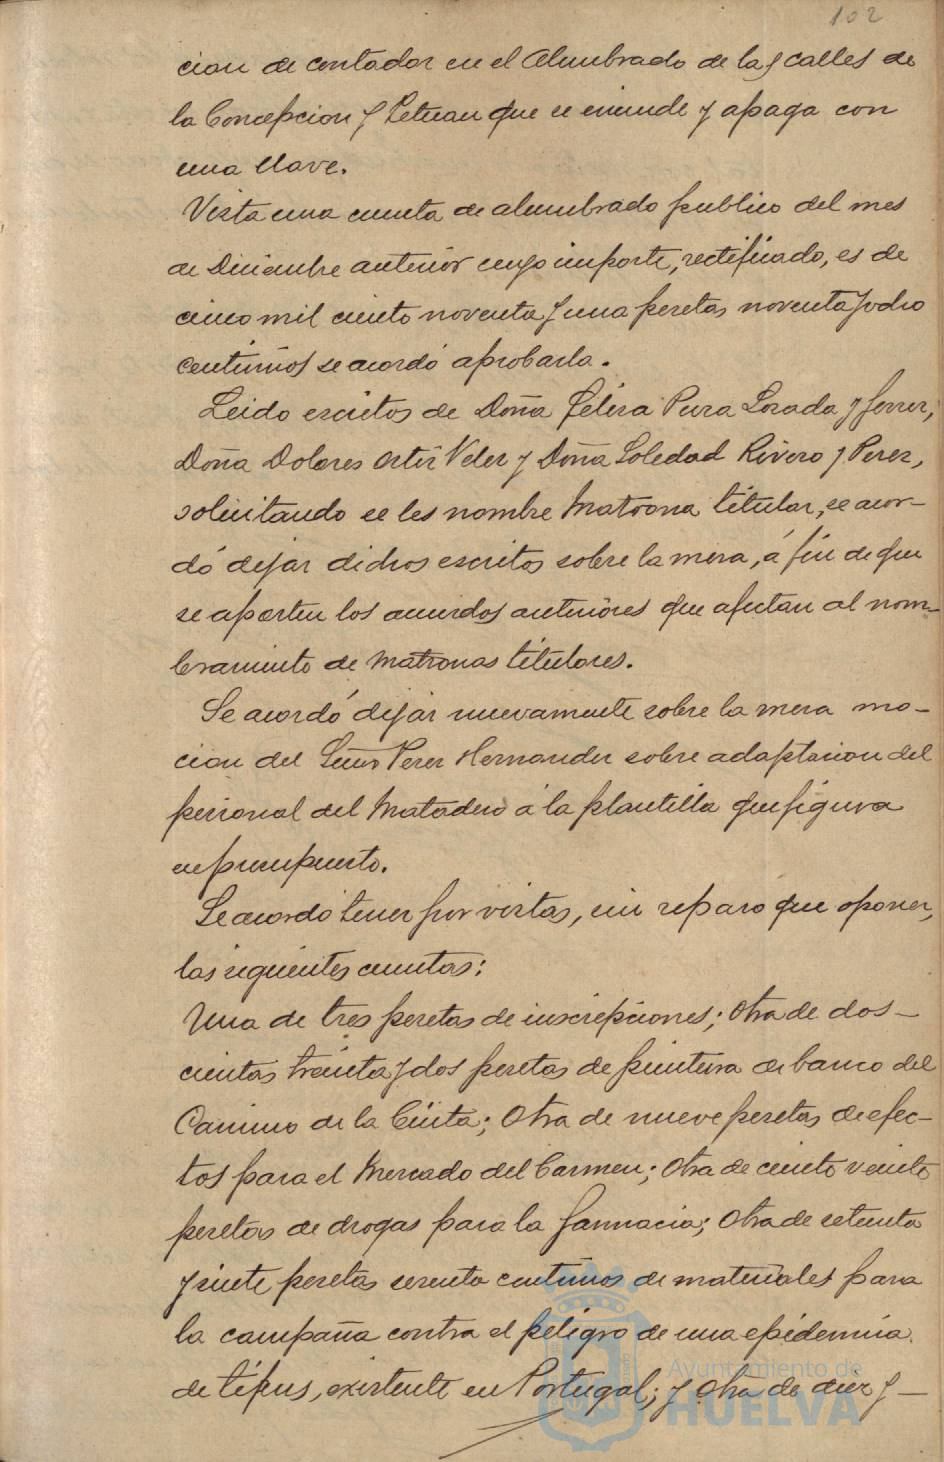 102
cion de contador en el Alumbrado de las calles de
la Concepcion y Tetuan que se enciende y apaga con
una llave.
Vista una cuenta de alumbrado publico del mes
de Diciembre anterior cuyo importe, rectificado, es de
cinco mil ciento noventa y una pesetas noventa y ocho
centimos se acordó aprobarla.
Leido escritos de Doña Félisa Pura Losada y Ferrer,
Doña Dolores Ortiz Veler y Doña Soledad Rivero y Perez,
solicitando se les nombre Matrona titular, se acor-
dó dejar dichos escritos sobre la mesa, á fin de que
se aporten los acuerdos anteriores que afectan al nom-
bramiento de Matronas titulares.
Se acordó dejar nuevamente sobre la mesa mo-
cion del Señor Perez Hernandez sobre adaptacion del
personal del Matadero á la plantilla que figura
en presupuesto.
Se acordó tener por vistas, sin reparo que oponer,
las siguientes cuentas:
Una de tres pesetas de inscripciones; Otra de dos-
cientas treinta y dos pesetas de pintura de banco del
Camino de la Cinta; Otra de nueve pesetas de efec-
tos para el Mercado del Carmen; Otra de ciento veinte
pesetas de drogas para la farmacia; Otra de setenta
y siete pesetas sesenta centimos de materiales para
la campaña contra el peligro de una epidemia
de tifus, existente en Portugal; y Otra de diez y —
Ayuntamiento de
HUELVA